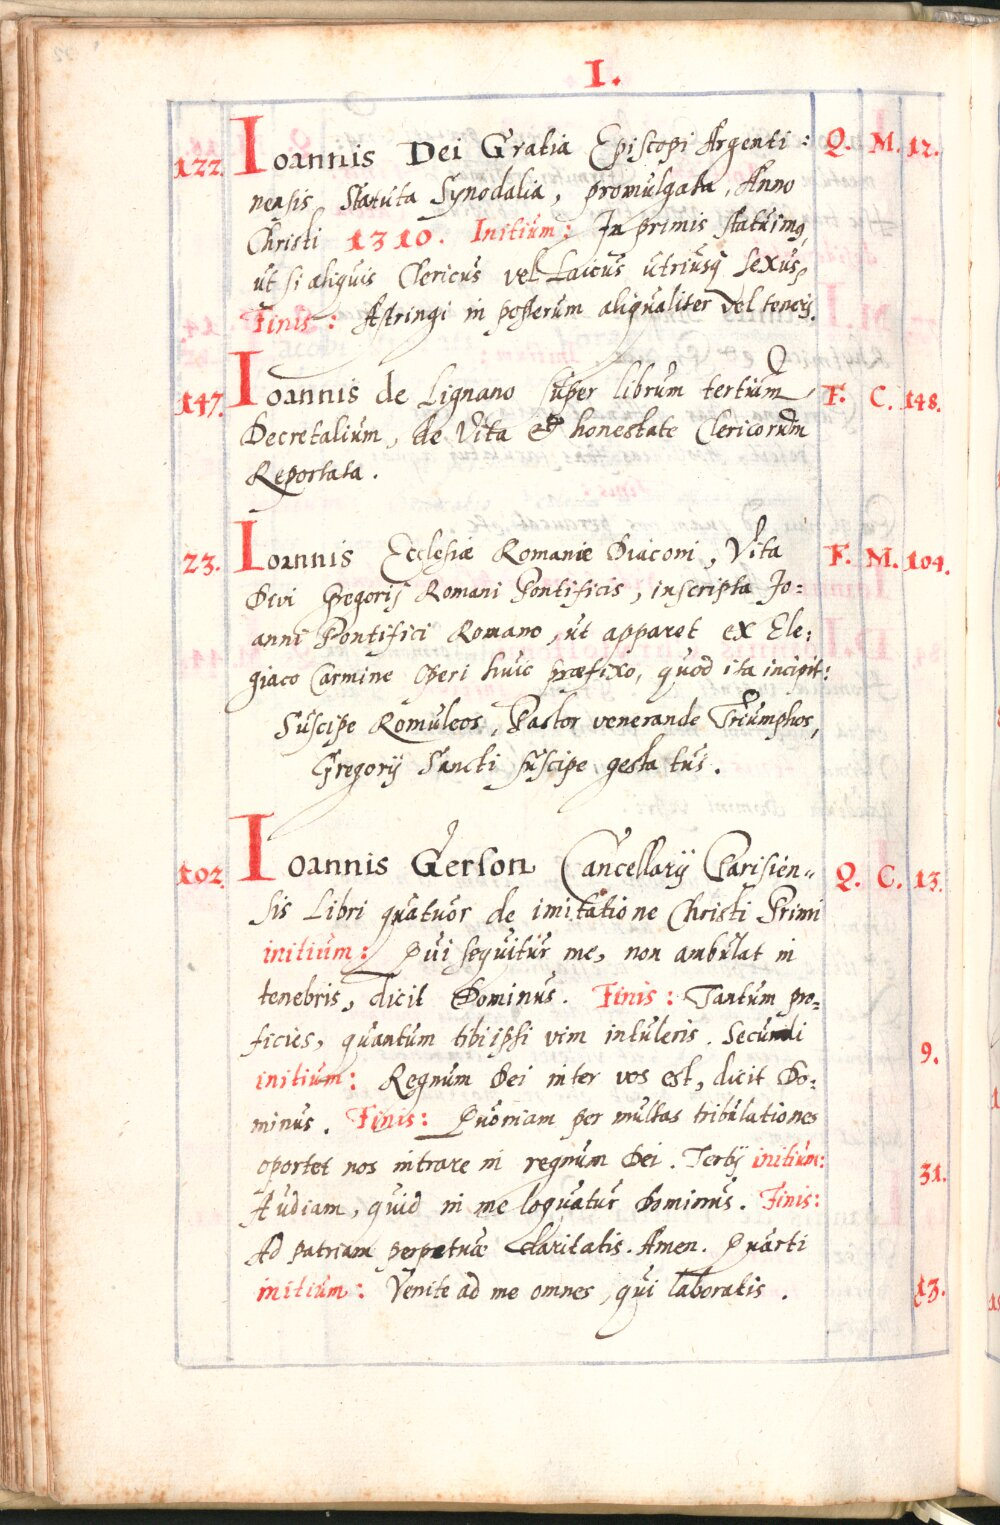 I.
122. Ioannis Dei Gratia Episcopi Argenti: Q. M. 12.
nensis Statuta Synodalia, promulgata, Anno
Christi 1310. Initium: In primis statuimq,
ut si aliquis Clericus vel Laicus utriusq sexus,
Finis: Astringi in posterum aliqualiter vel teneri.
147. Ioannis de Lignano super librum tertium F. C. 148.
Decretalium, de Vita et honestate Clericorum
Reportata.
23. Ioannis Ecclesiæ Romanæ Diaconi, Vita F. M. 104.
Divi Gregorij Romani Pontificis, inscripta Jo:
anni Pontifici Romano, ut apparet ex Ele:
giaco Carmine Operi huic præfixo, quod ita incipit:
Suscipe Romuleos, Pastor venerande Triumphos,
Gregorij Sancti suscipe gesta tui.
102. Ioannis Gerson Cancellarij Parisien„ Q. C. 13.
sis Libri quatuor de imitatione Christi Primi
initium: Qui sequitur me, non ambulat in
tenebris, dicit Dominus. Finis: Tantum pro:
ficies, quantum tibi ipsi vim intuleris. Secundi 9.
initium: Regnum Dei inter vos est, dicit Do:
minus. Finis: Quoniam per multas tribulationes
oportet nos intrare in regnum Dei. Tertij initium: 31.
Audiam, quid in me loquatur Dominus. Finis:
Ad patriam perpetuæ claritatis. Amen. Quarti
initium: Venite ad me omnes, qui laboratis. 13.